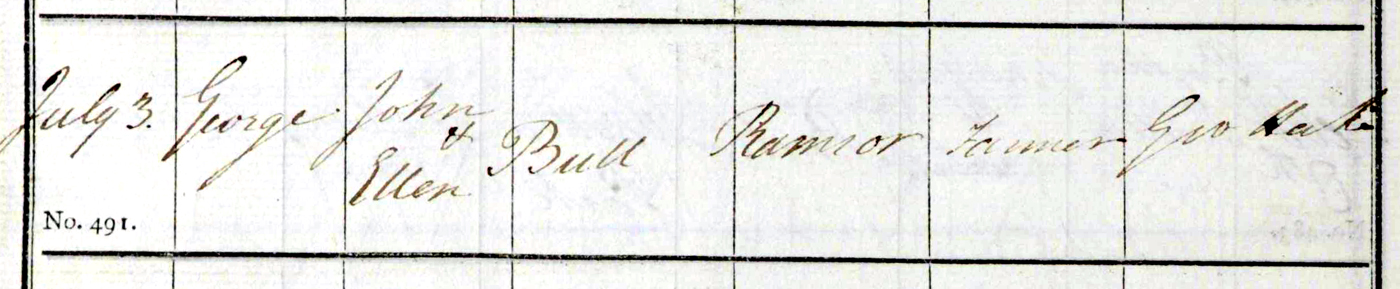 July 3. George John & Ellen Bull Ramsor Farmer Geo
No. 491.